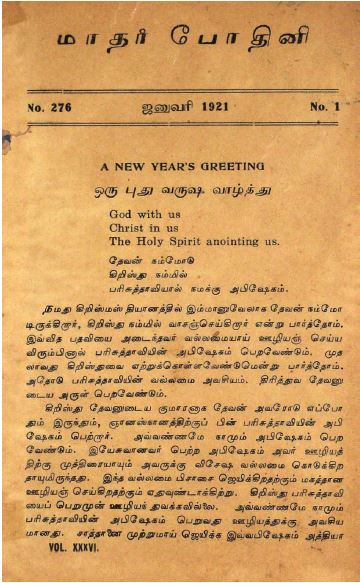 மாதர் போதினி
No. 276 ஜனுவரி 1921 No. 1
A NEW YEAR'S GREETING
ஒரு புது வருஷ வாழ்த்து
God with us
Christ in us
The Holy Spirit anointing us.
தேவன் நம்மோடு
கிறிஸ்து நம்மில்
பரிசுத்தாவியால் நமக்கு அபிஷேகம்.
நமது கிறிஸ்மஸ் தியானத்தில் இம்மானுவேலாக தேவன் நம்மோ
டிருக்கிறார், கிறிஸ்து நம்மில் வாசஞ்செய்கிறார் என்று பார்த்தோம்.
இவ்வித பதவியை அடைந்தவர் வல்லமையாய் ஊழியஞ் செய்ய
விரும்பினால் பரிசுத்தாவியின் அபிஷேகம் பெறவேண்டும். முத
லாவது கிறிஸ்துவை ஏற்றுக்கொள்ளவேண்டுமென்று பார்த்தோம்.
அதோடு பரிசுத்தாவியின் வல்லமை அவசியம். திரித்துவ தேவனு
டைய அருள் பெறவேண்டும்.
கிறிஸ்து தேவனுடைய குமாரனாக தேவன் அவரோடு எப்போ
தும் இருந்தும், ஞானஸ்நானத்திற்குப் பின் பரிசுத்தாவியின் அபி
ஷேகம் பெற்றார். அவ்வண்ணமே நாமும் அபிஷேகம் பெற
வேண்டும். இயேசுவானவர் பெற்ற அபிஷேகம் அவர் ஊழியத்
திற்கு முத்திரையாயும் அவருக்கு விசேஷ வல்லமை கொடுக்கிற
தாயுமிருந்தது. இந்த வல்லமை பிசாசை ஜெயிக்கிறதற்கும் மகத்தான
ஊழியஞ் செய்கிறதற்கும் ஏதுவுண்டாக்கிற்று. கிறிஸ்து பரிசுத்தாவி
யைப் பெறுமுன் ஊழியந் துவக்கவில்லை. அவ்வண்ணமே நாமும்
பரிசுத்தாவியின் அபிஷேகம் பெறுவது ஊழியத்துக்கு அவசிய
மானது. சாத்தானை முற்றுமாய் ஜெயிக்க இவ்வபிஷேகம் அத்தியா
VOL. XXXVI.